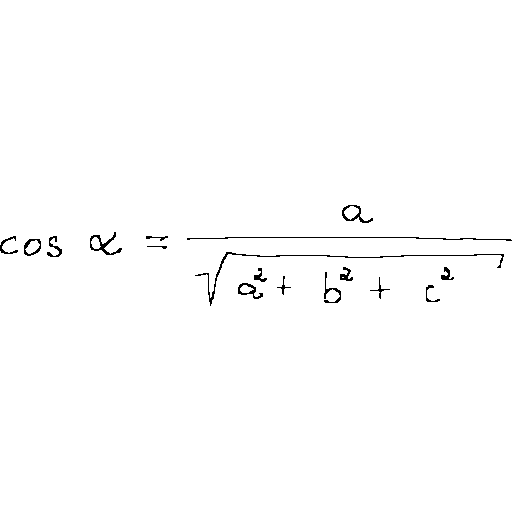 cos α = \frac{a}{\sqrt{a^2 + b^2 + c^2}}